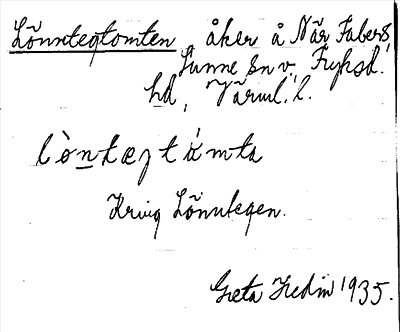 Lönntegtomten åker å När Fabers,
Sunne sn v. Fryksd.
hd, Värml. l.
lòntægtámta
Kring Lönntegen.
Greta Hedin 1935.